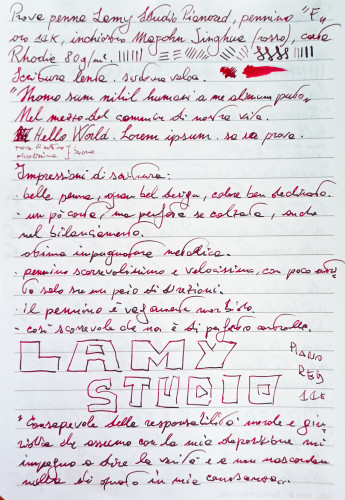 Prova penna Lamy Studio Pianored, pennino "F"
oro 14K, inchiostro Mapohn Singhua (rosso), carta
Rhodia 80g/m².
Scrittura lenta. scrittura veloce.
"Homo sum nihil humani a me alienum puto"
Nel mezzo del cammin di nostra vita.
Hello World. Lorem ipsum. sa sa prova.
Impressioni di scrittura:
- bella penna, gran bel design, colore ben declinato.
- un pò corta, ma perfetta se calzata, anche
nel bilanciamento.
- ottima impugnatura metallica.
- pennino scorrevolissimo e velocissimo, con poco
solo su un paio di direzioni.
- il pennino è vagamente morbido.
- così scorrevole che non è di perfetto controllo.
LAMY
STUDIO
PIANO
RED
14K
"Consapevole della responsabilità morale e giu-
ridica che assumo con la mia deposizione mi
impegno a dire la verità e a non nascondere
nulla di quanto in mia conoscenza...